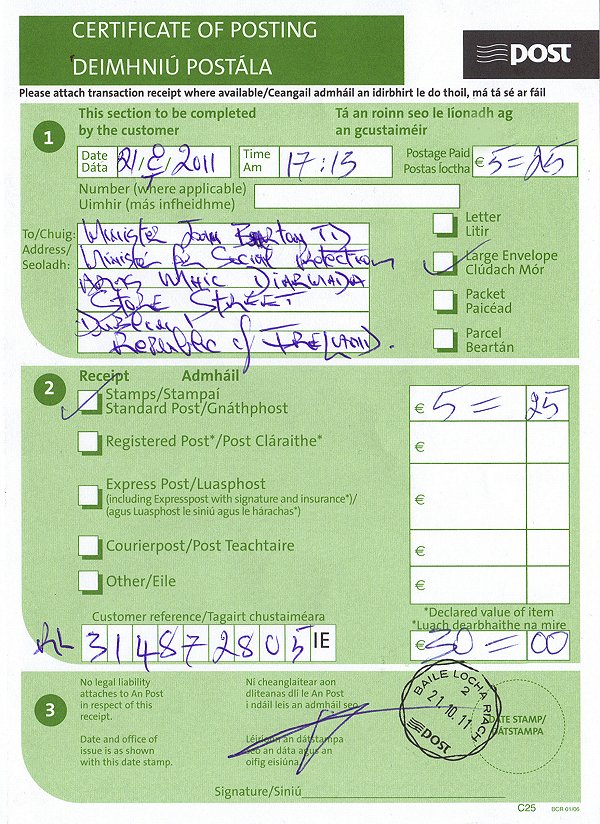 CERTIFICATE OF POSTING
DEIMHNIÚ POSTÁLA
post
Please attach transaction receipt where available/Ceangail admháil an idirbhirt le do thoil, má tá sé ar fáil
1
This section to be completed
by the customer
Tá an roinn seo le líonadh ag
an gcustaiméir
Date
Dáta
21/ /2011
Time
Am
17:15
Postage Paid
Postas Íoctha
€ 5=25
Number (where applicable)
Uimhir (más infheidhme)
To/Chuig:
Address/
Seoladh:
Minister Joan Burton TD
Minister for Social Protection
Áras Mhic Diarmada
Store Street
Dublin 1
Republic of IRELAND.
Letter
Litir
Large Envelope
Clúdach Mór
Packet
Paicéad
Parcel
Beartán
2
Receipt Admháil
Stamps/Stampaí
Standard Post/Gnáthphost
€ 5 = 25
Registered Post*/Post Cláraithe*
€
Express Post/Luasphost
(including Expresspost with signature and insurance*)/
(agus Luasphost le siniú agus le hárachas*)
€
Courierpost/Post Teachtaire
€
Other/Eile
€
Customer reference/Tagairt chustaiméara
*Declared value of item
*Luach dearbhaithe na míre
RL 314872805 IE
€ 30 = 00
3
No legal liability
attaches to An Post
in respect of this
receipt.
Ní cheanglaítear aon
dliteanas dlí le An Post
i ndáil leis an admháil seo.
Date and office of
issue is as shown
with this date stamp.
Léiríonn an dátstampa
seo an dáta agus an
oifig eisiúna.
BAILE LOCHA RIACH
2
21.10.11
post
DATE STAMP/
DÁTSTAMPA
Signature/Siniú
C25
BCR 01/06